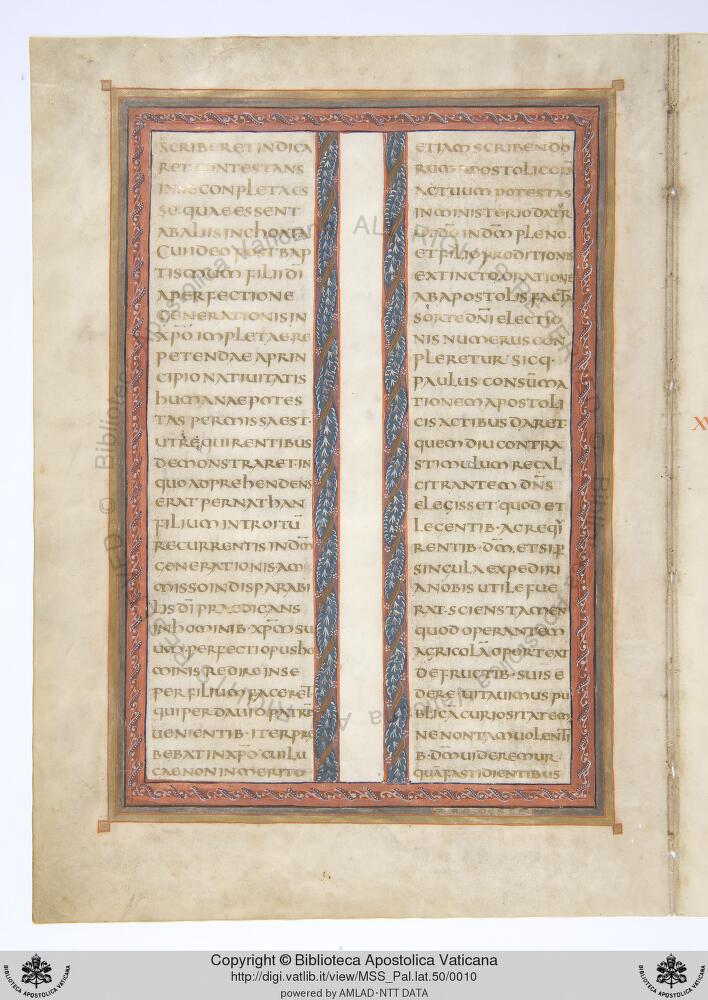 SCRIBERET INDICA
RET CONTESTANS
INSE CONPLETA ES
SE QUAE ESSENT
AB ALIIS INCHOATA
CUI IDEO POST BAP
TISMUM FILII DĪ
A PERFECTIONE
GENERATIONIS IN
XPŌ IMPLETAE RE
PETENDAE A PRIN
CIPIO NATIUITATIS
HUMANAE POTES
TAS PERMISSA EST·
UT REQUIRENTIBUS
DEMONSTRARET·IN
QUO ADPREHENDENS
ERAT PER NATHAN
FILIUM INTROITŪ
RECURRENTIS IN DM̄
GENERATIONIS·
MISSO INDISPARABI
LIS DĪ PRAEDICANS
IN HOMINIB·XPM̄ SU
UM·PERFECTI OPUS HO
MINIS REDIRE IN SE
PER FILIUM FACERET
QUI PER DAUID PATRĒ
UENIENTIB·ITER PRE
BEBAT IN XPŌ CUI LU
CAE NON INMERITO
ETIAM SCRIBENDO
RUM APOSTOLICOR̄
ACTUUM POTESTAS
IN MINISTERIO DATR̄
IN DM̄ PLENO
ET FILIO PRODITIONIS
EXTINCTO, ORATIONE
AB APOSTOLIS FACTA
SORTE DN̄I ELECTIO
NIS NUMERUS CON
PLERETUR SICQ·
PAULUS CONSŪMA
TIONEM APOSTOLI
CIS ACTIBUS DARET·
QUEM DIU CONTRA
STIMULUM RECAL
CITRANTEM DN̄S
ELEGISSET QUOD ET
LEGENTIB·AC REQI
RENTIB·DM̄, ETSI P̄
SINGULA EXPEDIRI
A NOBIS UTILE FUE
RAT·SCIENS TAMEN
QUOD OPERANTEM
AGRICOLĀ OPORTEAT
DE FRUCTIB·SUIS E
DERE UITAUIMUS PU
BLICA CURIOSITATEM
NE NON TAM UOLENTI
B·DM̄ UIDEREMUR
QUĀ FASTIDIENTIBUS
Copyright © Biblioteca Apostolica Vaticana
http://digi.vatlib.it/view/MSS_Pal.lat.50/0010
powered by AMLAD·NTT DATA